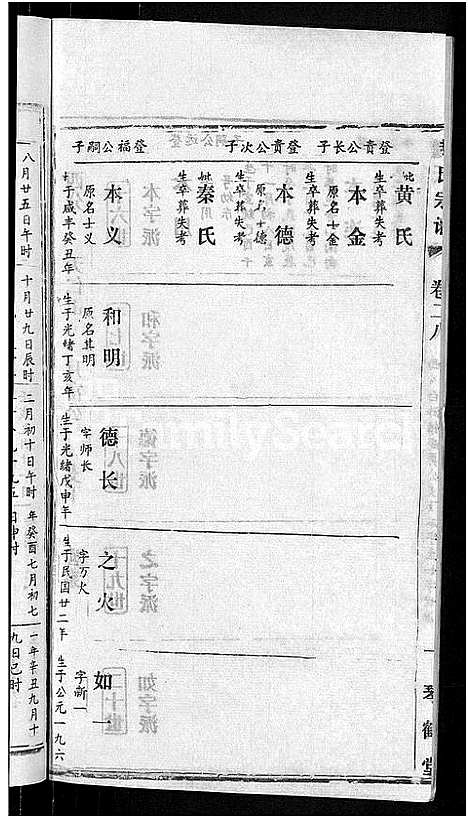 氏宗谱
卷二八
一
琴鹤堂
登贵公长子
妣黄氏
生卒葬失考
本金
原名士金
生卒葬失考
登贵公次子
本德
原名士德
生卒葬失考
妣秦氏
生卒葬失考
登福公嗣子
本义
原名士义
生于咸丰癸丑年
八月廿五日午时
和明
原名其明
生于光绪丁亥年
十月廿九日辰时
德长
字师长
生于光绪戊申年
二月初十日午时
之火
字万火
生于民国廿二年
年癸酉七月初七
日申时
如一
字新一
生于公元一九六
一年辛丑九月十
九日巳时